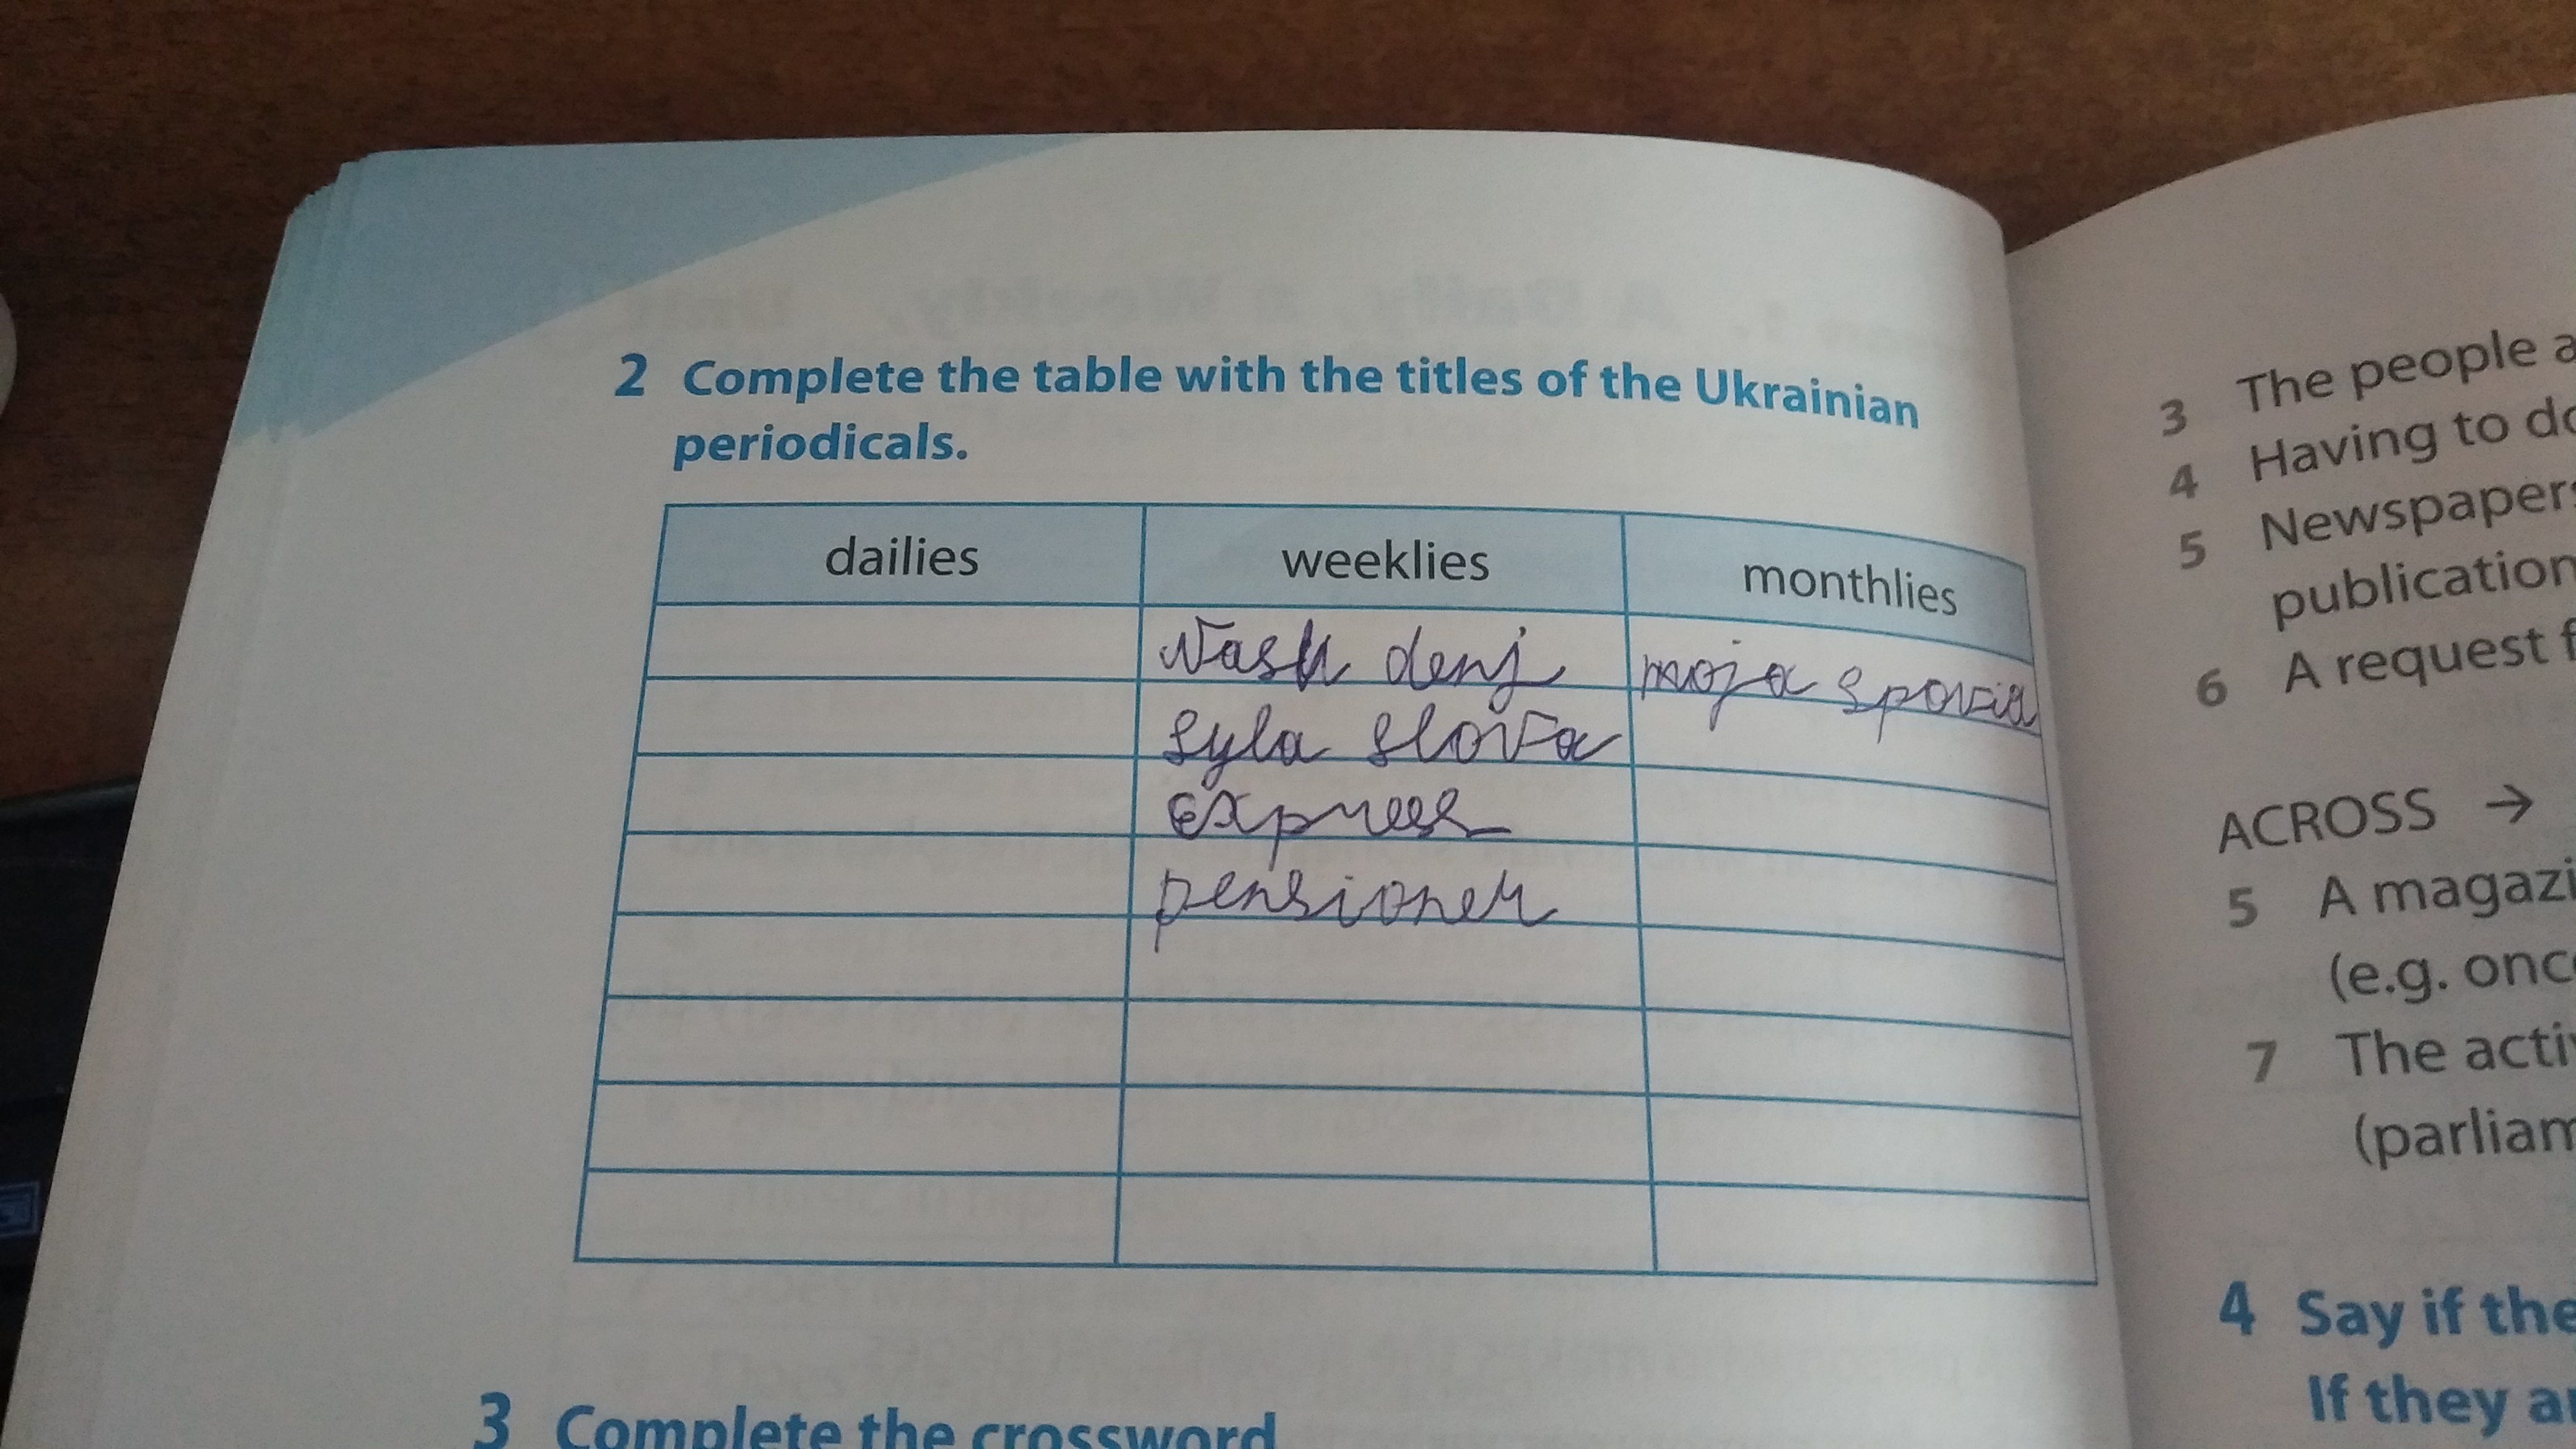 2 Complete the table with the titles of the Ukrainian
periodicals.
dailies weeklies monthlies
Nash denj moja spovid
Syla slova
express
pensioner
3 Complete the crossword
3 The people a
4 Having to do
5 Newspapers
publication
6 A request f
ACROSS →
5 A magazi
(e.g. onc
7 The activ
(parliam
4 Say if the
If they ar